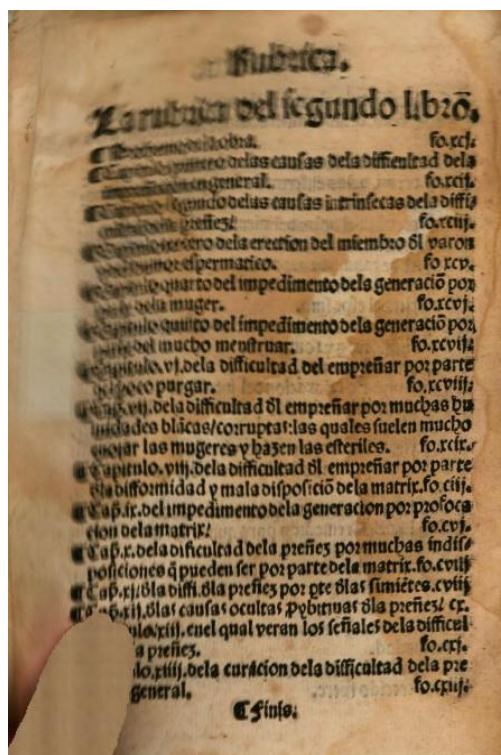 Rubrica.
La rubrica del segundo librō.
fo.xcj.
¶ Capitulo primero delas causas dela difficultad dela
en general. fo.xcij.
¶ Capitulo segundo delas causas intrinsecas dela diffi
preñez/ fo.xciij.
¶ Capitulo tercero dela erection del miembro dl varon
espermatico. fo.xcv.
¶ Capitulo quarto del impedimento dela generaciō por
parte dela muger. fo.xcvj.
¶ Capitulo quinto del impedimento dela generaciō por
parte del mucho menstruar. fo.xcvij.
¶ Capitulo.vj.dela difficultad del empreñar por parte
del poco purgar. fo.xcviij.
¶ Cap̄.vij.dela difficultad dl empreñar por muchas hu
midades blācas/corruptas:las quales suelen mucho
enojar las mugeres y hazen las esteriles. fo.xcix.
¶ Capitulo.viij.dela difficultad dl empreñar por parte
dla difformidad y mala disposiciō dela matrix.fo.ciij.
¶ Cap̄.ix.del impedimento dela generacion por profoca
cion dela matrix/ fo.cvj.
¶ Cap̄.x.dela dificultad dela preñez por muchas indis/
posiciones q̄ pueden ser por parte dela matrix.fo.cviij
¶ Cap̄.xj.dla diffi.dla preñez por pte dlas simiētes.cviij
¶ Cap̄.xij.dlas causas ocultas dla preñez/ cx.
xiij.enel qual veran los señales dela difficul
a preñez. fo.cxj.
lo.xiiij.dela curacion dela difficultad dela pre
general. fo.cxiij.
¶ Finis.